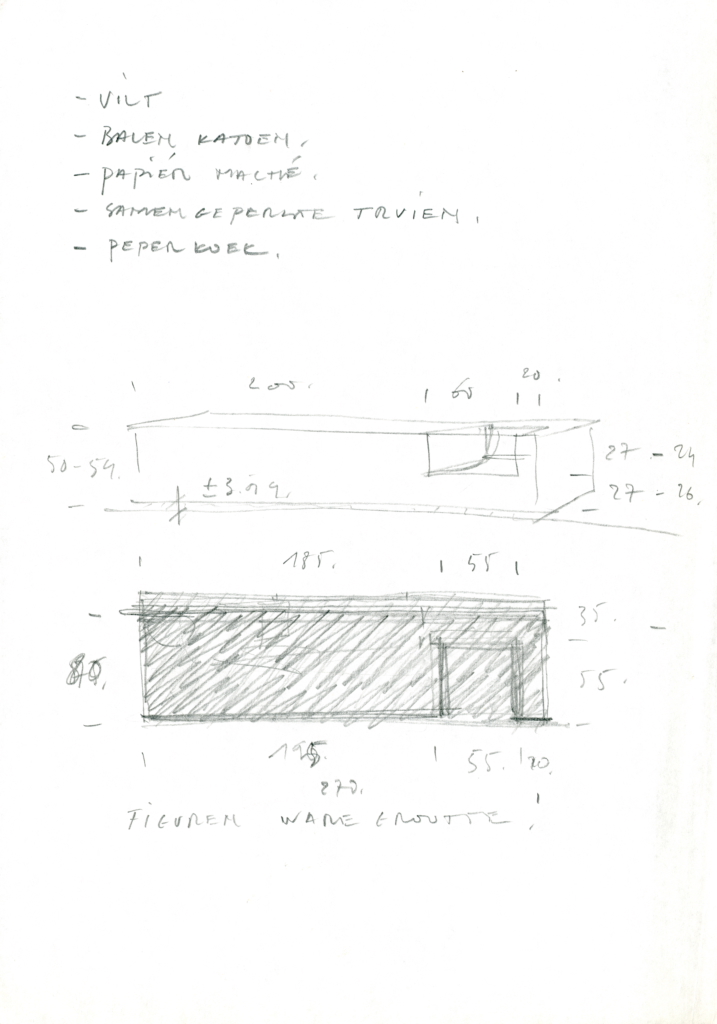 - VILT
- BALEN KATOEN.
- PAPIÉR MACHÉ.
- SAMENGEPERSTE TRUIEN.
- PEPERKOEK.
20.
200. 60
27 - 24
50-54.
27 - 26.
± 3.
185. 55
35.
55.
195. 55. 20.
270.
FIGUREN WARE GROOTTE!